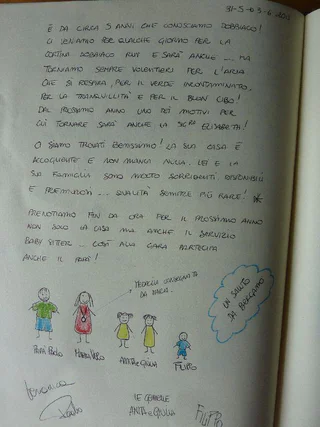 31-5-03-6-2012
È DA CIRCA 5 ANNI CHE CONOSCIAMO DOBBIACO!
CI VENIAMO PER QUALCHE GIORNO PER LA
CORTINA DOBBIACO RUN E SARÀ ANCHE ... MA
TORNIAMO SEMPRE VOLENTIERI PER L'ARIA
CHE SI RESPIRA, PER IL VERDE INCONTAMINATO,
PER LA TRANQUILLITÀ E PER IL BUON CIBO!
DAL PROSSIMO ANNO UNO DEI MOTIVI PER
CUI TORNARE SARÀ ANCHE LA SIG.RA ELISABETTA!
CI SIAMO TROVATI BENISSIMO! LA SUA CASA È
ACCOGLIENTE E NON MANCA NULLA. LEI E LA
SUA FAMIGLIA SONO MOLTO SORRIDENTI DISPONIBILI
E PREMUROSI ... QUALITÀ SEMPRE PIÙ RARE!
PRENOTIAMO FIN DA ORA PER IL PROSSIMO ANNO
NON SOLO LA CASA MA ANCHE IL SERVIZIO
BABY SITTER ... COSÌ ALLA GARA PARTECIPA
ANCHE IL PAPÀ!
MEDAGLIA CONSEGNATA
DA
UN SALUTO
DA BERGAMO
PAPÀ PAOLO
MAMMA
ANITA e GIULIA
FILIPPO
Paolo
LE GEMELLE
ANITA e GIULIA
FILIPPO